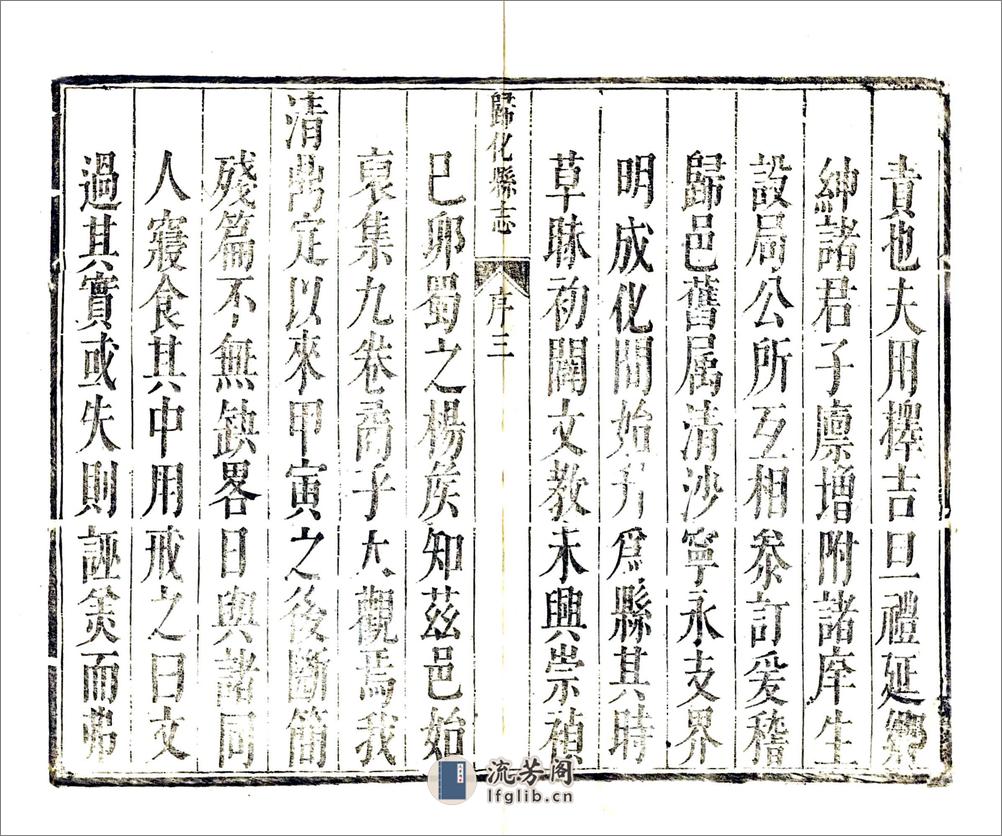 責也夫用擇吉旦禮延鄉
紳諸君子廩增附諸庠生
設局公所互相叅訂爰稽
歸邑舊属清沙寧永支界
明成化間始升爲縣其時
草昧初闢文敎未興崇禎
歸化縣志 序 三
己卯蜀之楊侯知茲邑始
裒集九卷斎乎大觀焉我
清鼎定以來甲寅之後斷簡
殘篇不無缺畧日與諸同
人寢食其中用戒之曰文
過其實或失則誣美而弗
流芳阁
lfglib.cn